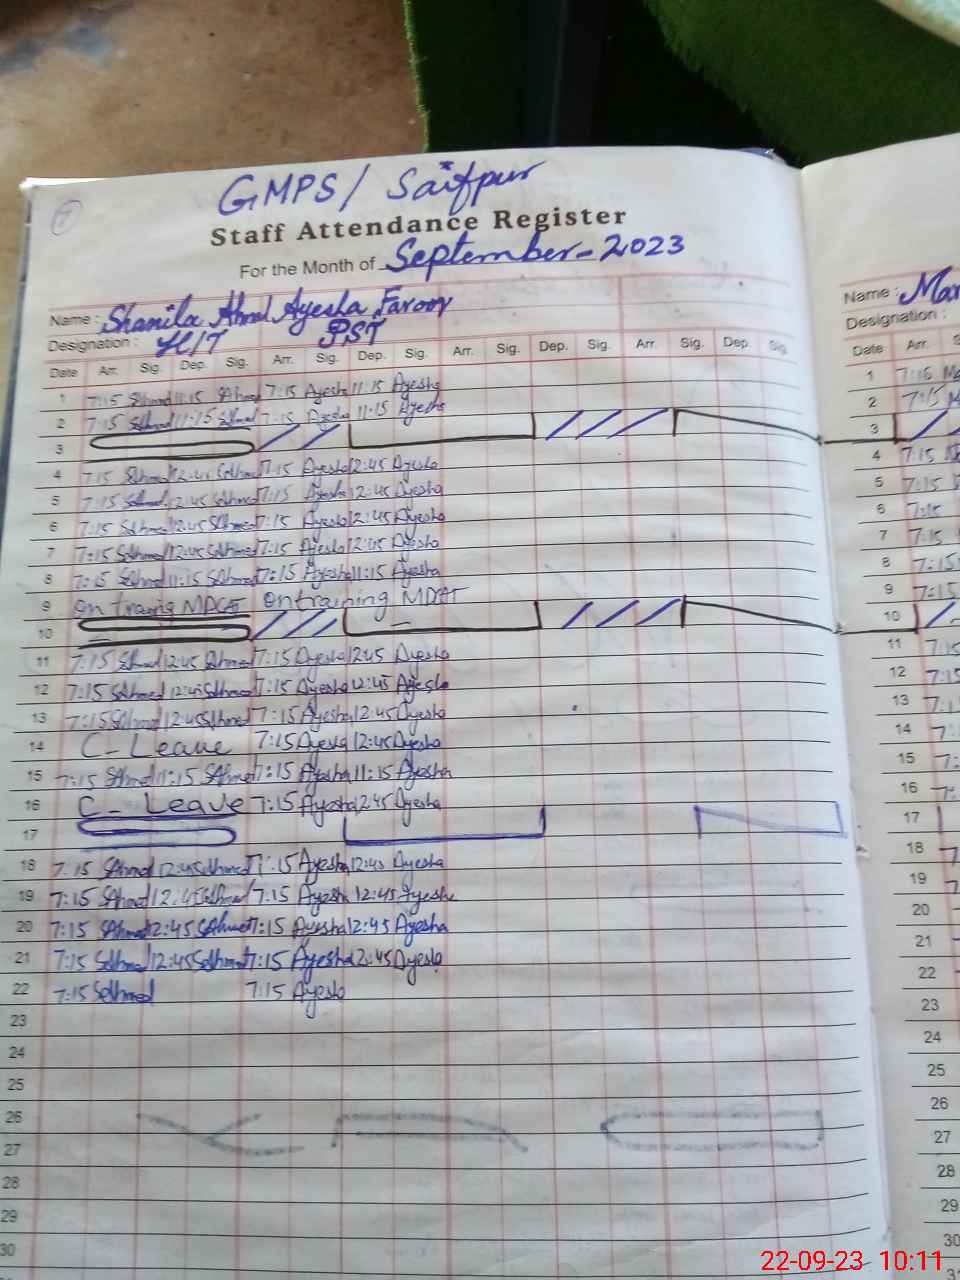 7
GMPS/ Saifpur
Staff Attendance Register
For the Month of September-2023
Name: Shanila Ahmd Ayesha Farooq
Designation: H/T PST
Date Arr. Sig. Dep. Sig. Arr. Sig. Dep. Sig. Arr. Sig. Dep. Sig. Arr. Sig. Dep Sig
1 7:15 SAhmed 11:15 SAhmed 7:15 Ayesha 11:15 Ayesha
2 7:15 SAhmed 11:15 SAhmed 7:15 Ayesha 11:15 Ayesha
3
4 7:15 SAhmed 12:45 SAhmed 7:15 Ayesha 12:45 Ayesha
5 7:15 SAhmed 12:45 SAhmed 7:15 Ayesha 12:45 Ayesha
6 7:15 SAhmed 12:45 SAhmed 7:15 Ayesha 12:45 Ayesha
7 7:15 SAhmed 12:45 SAhmed 7:15 Ayesha 12:45 Ayesha
8 7:15 SAhmed 11:15 SAhmed 7:15 Ayesha 11:15 Ayesha
9 on on training
10
11 7:15 SAhmed 12:45 SAhmed 7:15 Ayesha 12:45 Ayesha
12 7:15 SAhmed 12:45 SAhmed 7:15 Ayesha 12:45 Ayesha
13 7:15 SAhmed 12:45 SAhmed 7:15 Ayesha 12:45 Ayesha
14 C-Leave 7:15 Ayesha 12:45 Ayesha
15 7:15 SAhmed 11:15 SAhmed 7:15 Ayesha 11:15 Ayesha
16 C-Leave 7:15 Ayesha 12:45 Ayesha
17
18 7:15 SAhmed 12:45 SAhmed 7:15 Ayesha 12:45 Ayesha
19 7:15 SAhmed 12:45 SAhmed 7:15 Ayesha 12:45 Ayesha
20 7:15 SAhmed 12:45 SAhmed 7:15 Ayesha 12:45 Ayesha
21 7:15 SAhmed 12:45 SAhmed 7:15 Ayesha 12:45 Ayesha
22 7:15 SAhmed 7:15 Ayesha
23
24
25
26
27
28
29
30
Name: Mar
Designation :
Date Arr. S
1 7:15 Ma
2 7:15 M
3
4 7:15
5 7:15
6 7:15
7 7:15
8 7:15
9 7:15
10
11 7:15
12 7:15
13 7:1
14 7:
15 7:
16 7:
17
18 7
19 7
20
21
22
23
24
25
26
27
28
29
30
31
22-09-23 10:11